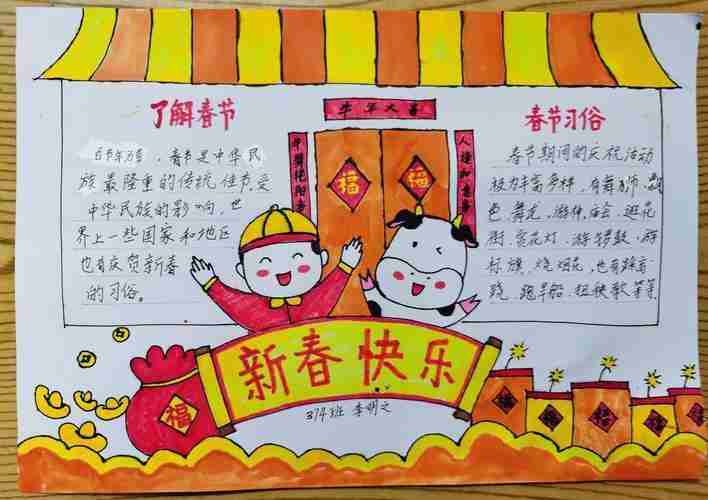 了解春节
春节是中华民
族最隆重的传统佳节,受
中华民族的影响,世
界上一些国家和地区
也有庆贺新春
的习俗。
牛年大吉
福
福
春节习俗
春节期间的庆祝活动
极为丰富多样,有舞狮、
色、舞龙、游神、庙会、逛花
街、赏花灯、游锣鼓、游
标旗、烧烟花,也有踩高
跷、跑旱船、扭秧歌等等
新春快乐
374班 李明
福
福
福
福
福
福